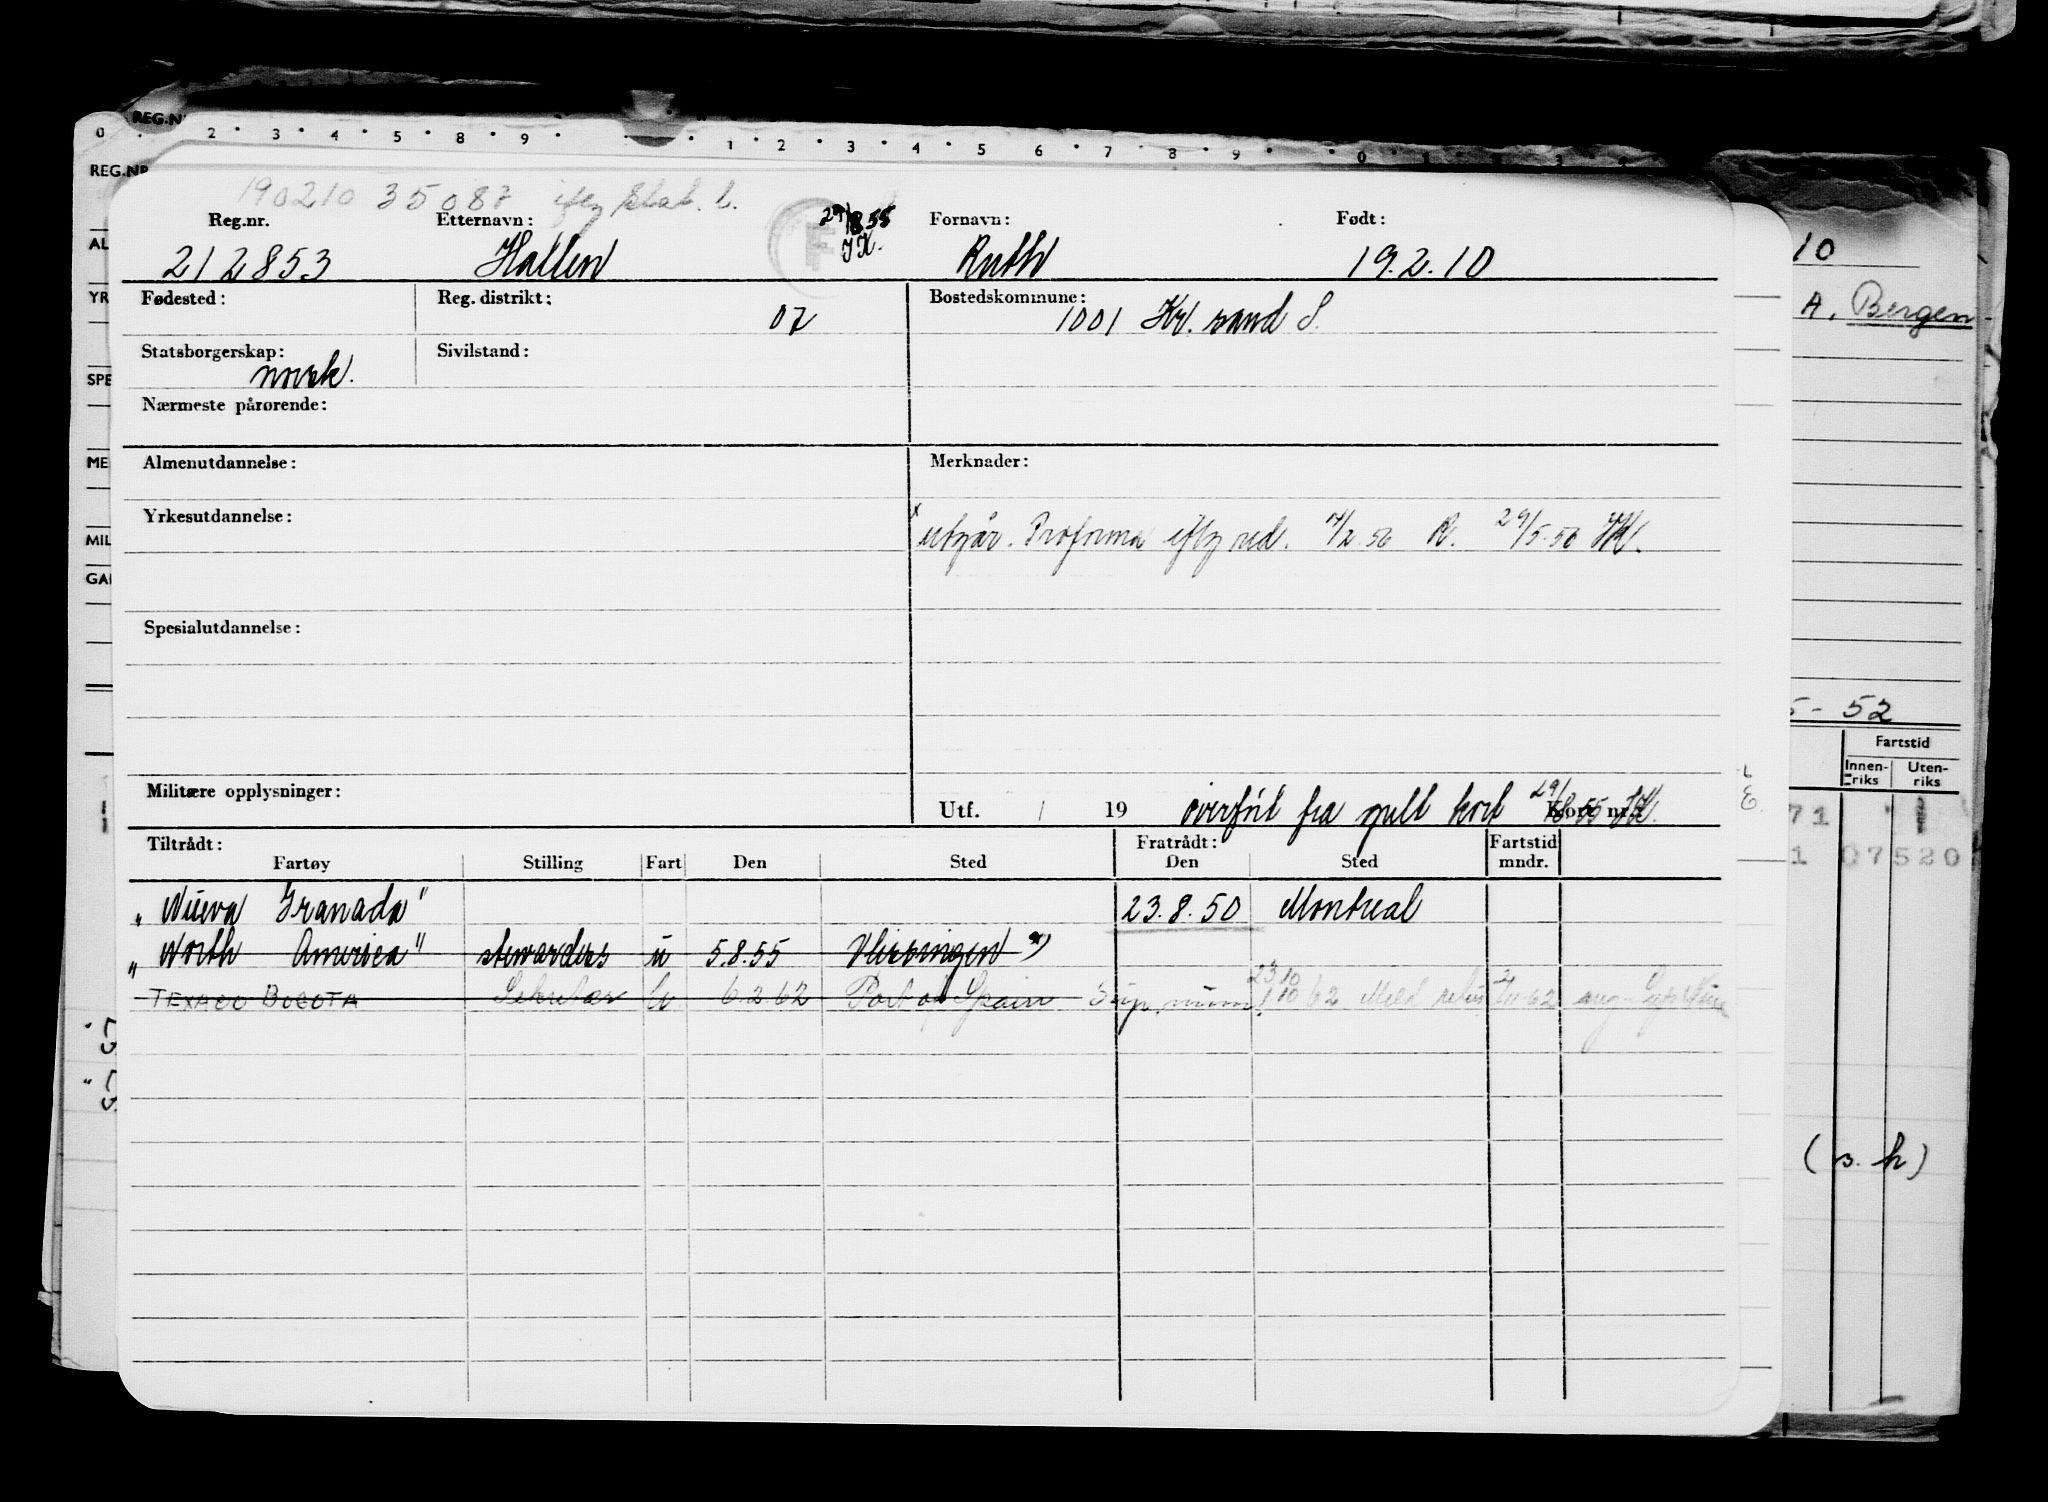 REG.NR
0 2 3 4 5 8 9 1 2 3 4 5 6 7 8 9 0 1 2 3
REG.NR
190210 35087
Reg.nr. Etternavn: 29/8 55 Fornavn: Født:
F JK.
212853 Hallen Ruth 19.2.10
10
Fødested: Reg. distrikt: 07 Bostedskommune: 1001 Kr. sand S.
A, Bergen
Statsborgerskap: norsk. Sivilstand:
Nærmeste pårørende:
Almenutdannelse: Merknader:
Yrkesutdannelse:
x utgår. Proforma 29/5.56 JK.
Spesialutdannelse:
5 - 52
Fartstid
Innen-riks Uten-riks
Militære opplysninger: Utf. / 19 overført fra gult kort 29/8 55 JK. Kort nr.
71
1 07520
Tiltrådt: Fratrådt: Fartstid
Fartøy Stilling Fart Den Sted Den Sted mndr.
"Nueva Granada" 23.8.50 Montreal
"North America" stewardess u 5.8.55 Vlissingen x)
TEXACO BOGOTA Sekretær U 6.2.62 Port of Spain 62
(s. h)